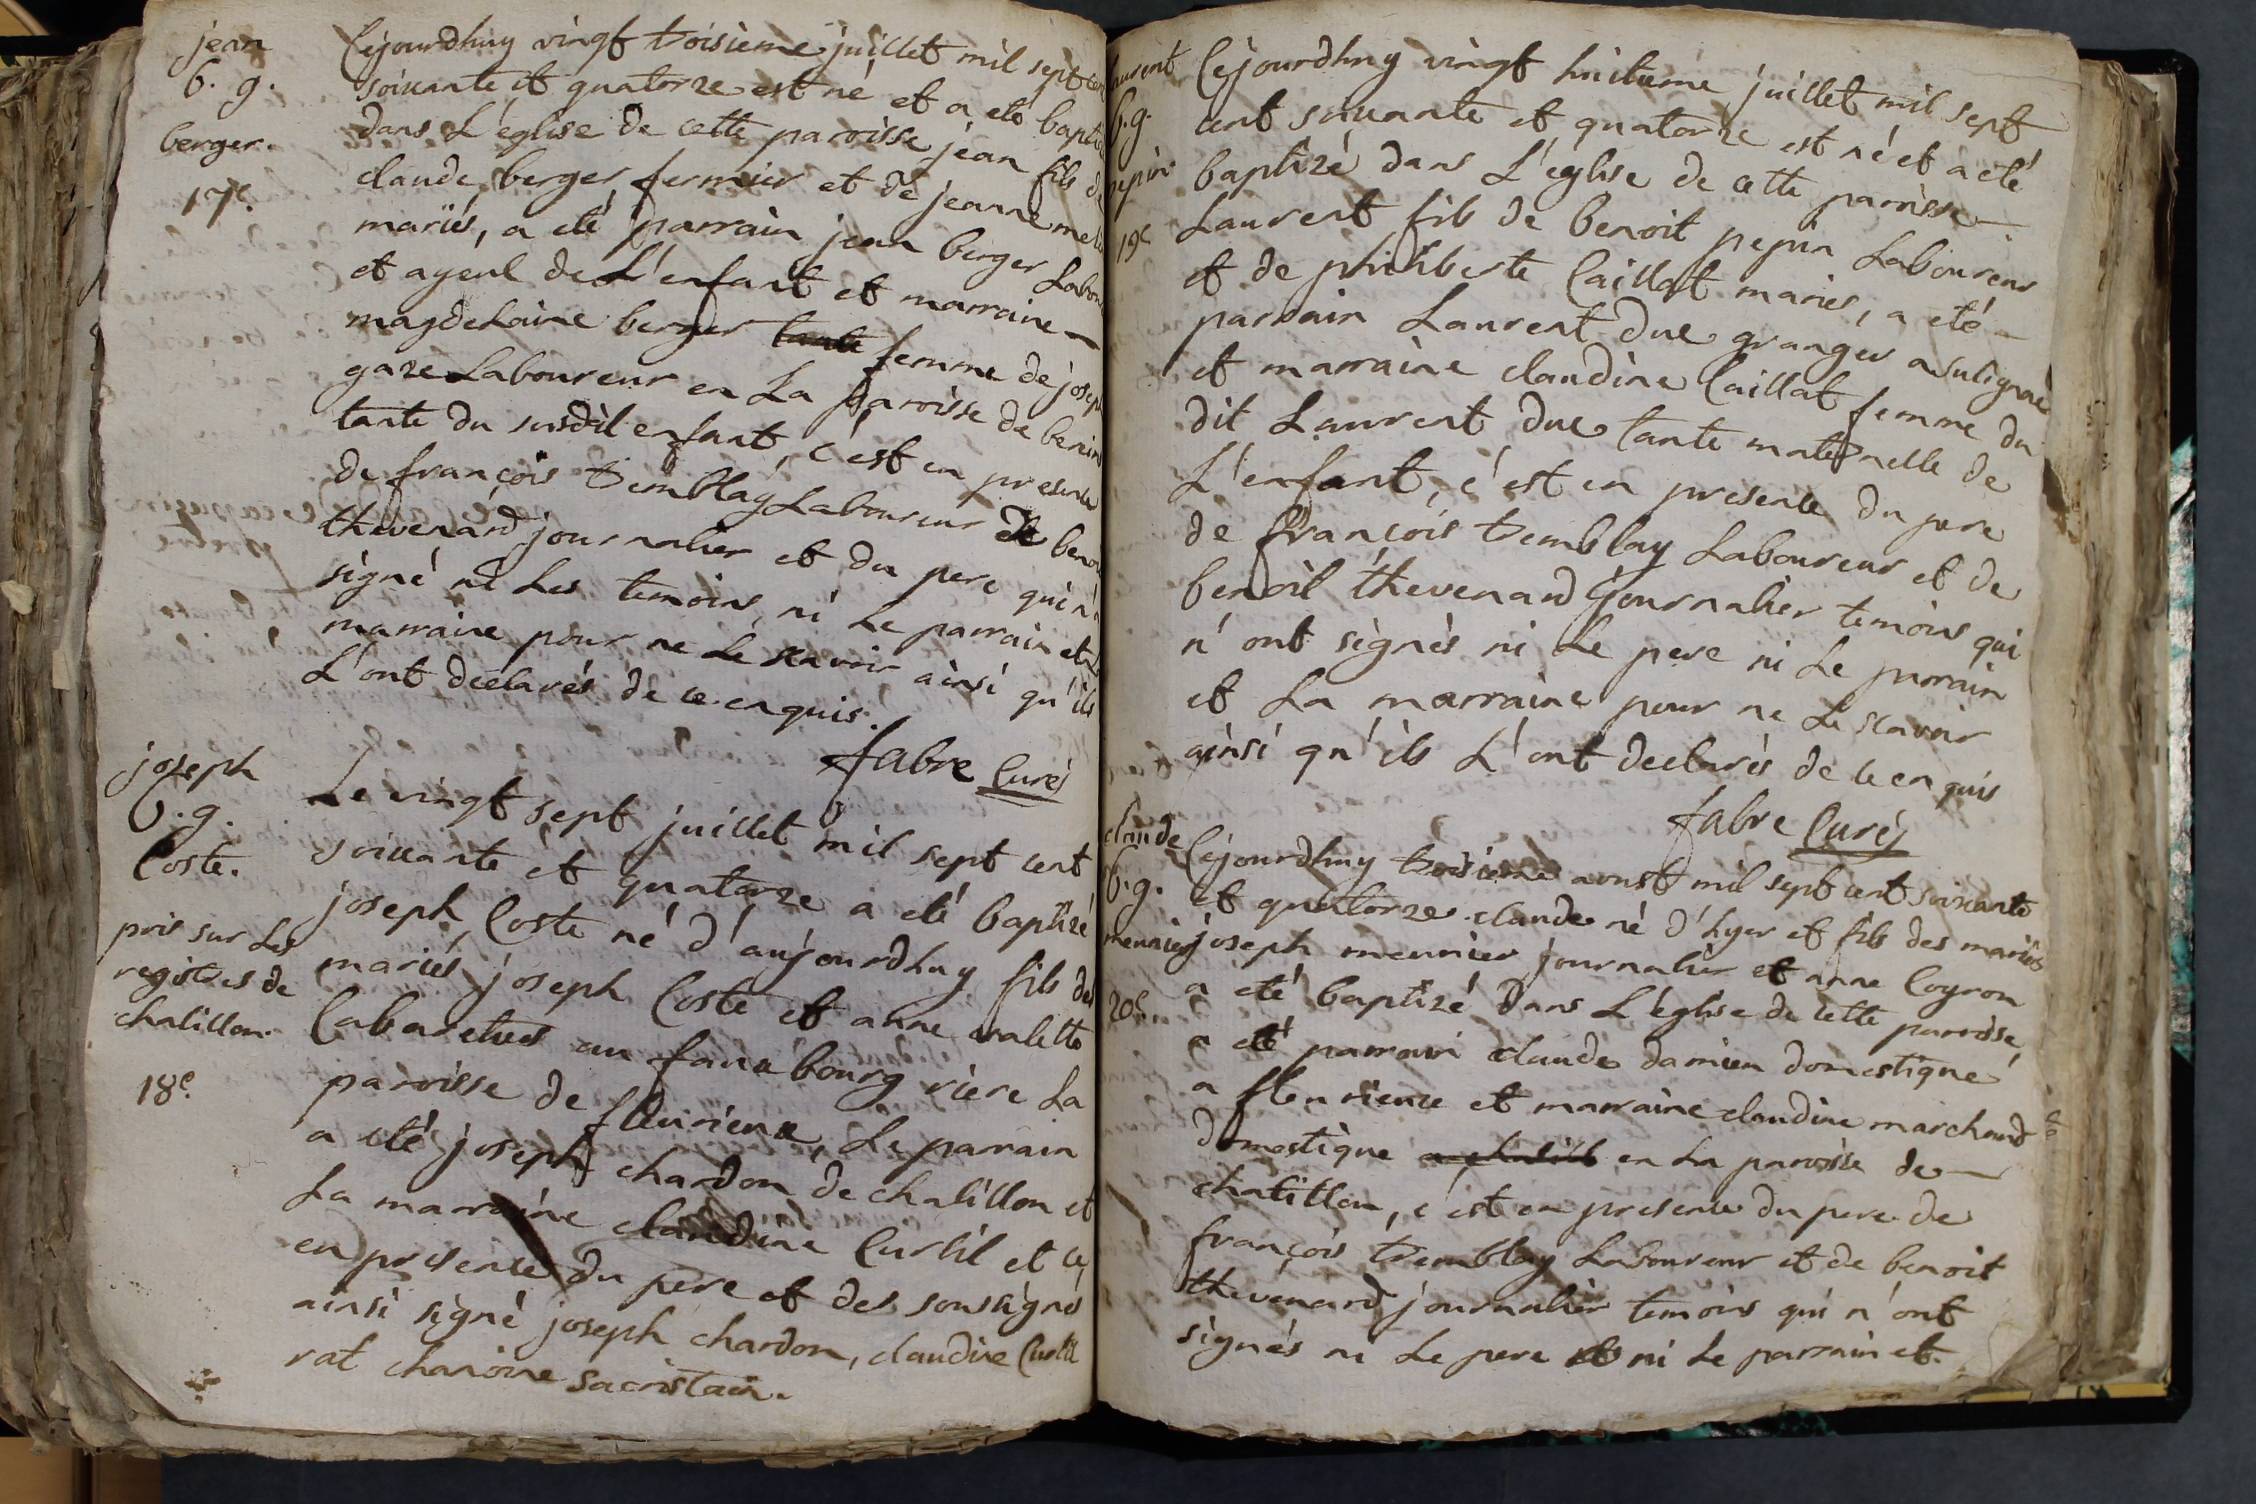 jean
b. g.
berger.
17e.
Cejourdhuy vingt troisieme juillet mil sept cent
soixante et quatorze est né et a eté baptisé
dans L'eglise de cette paroisse jean fils de
claude berger fermier et de jeanne
mariés, a eté parrain jean berger
et ayeul de L'enfant et marraine
magdelaine berger tante femme de joseph
gaze Laboureur en La paroisse de
tante du susdit enfant, c'est en presence
de françois tremblay Laboureur de
thevenard journalier et du pere qui n'
signé ni Les temoins, ni Le parrain et
marraine pour ne Le scavoir ainsi qu'ils
L'ont declarés de ce enquis.
fabre Curé
joseph
b. g.
Coste.
pris sur Les
registres de
chatillon.
18e.
Le vingt sept juillet mil sept cent
soixante et quatorze a eté baptisé
joseph Coste né d'aujourdhuy fils des
mariés joseph Coste et anne valette
Cabaretier au fauxbourg riere La
paroisse de fleurieux, Le parrain
a eté joseph chardon de chatillon et
La marraine claudine Curtil et ce
en presence du pere et des soussignés
ainsi signé joseph chardon, claudine Curtil
rat chanoine sacristain.
laurent
b. g.
pepin
19e
Cejourdhuy vingt huitieme juillet mil sept
cent soixante et quatorze est né et a eté
baptizé dans L'eglise de cette paroisse
Laurent fils de benoit pepin Laboureur
et de philiberte Caillat mariés, a eté
parrain Laurent duc granger a sulignat
et marraine claudine Caillat femme du
dit Laurent duc tante maternelle de
L'enfant, c'est en presence du pere
de françois tremblay Laboureur et de
benoit thevenard journalier temoins qui
n'ont signés ni Le pere ni Le parrain
et La marraine pour ne Le scavoir
ainsi qu'ils L'ont declarés de ce enquis
fabre Curé
claude
b. g.
meunier
20e.
Cejourdhuy troisieme aoust mil sept cent soixante
et quatorze claude né d'hyer et fils des mariés
joseph meunier journalier et anne Coyron
a eté baptizé dans L'eglise de cette paroisse
a eté parrain claude damien domestique
a fleurieux et marraine claudine marchand
domestique en La paroisse de
chatillon, c'est en presence du pere de
françois tremblay Laboureur et de benoit
thevenard journalier temoins qui n'ont
signés ni Le pere et ni Le parrain et.